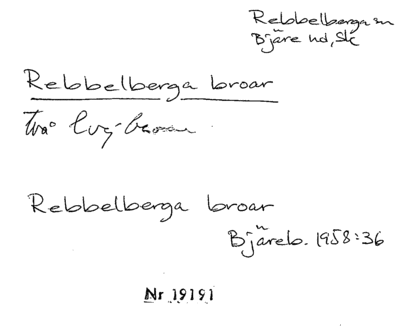 Rebbelberga sn
Bjäre hd, Sk
Rebbelberga broar
Två
Rebbelberga broar
Bjäreb. 1958:36
Nr 19191